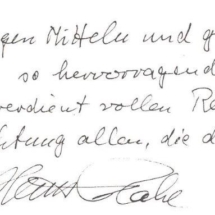 gen Mitteln und g
so hervorragend
verdient vollen Re
htung allen, die d